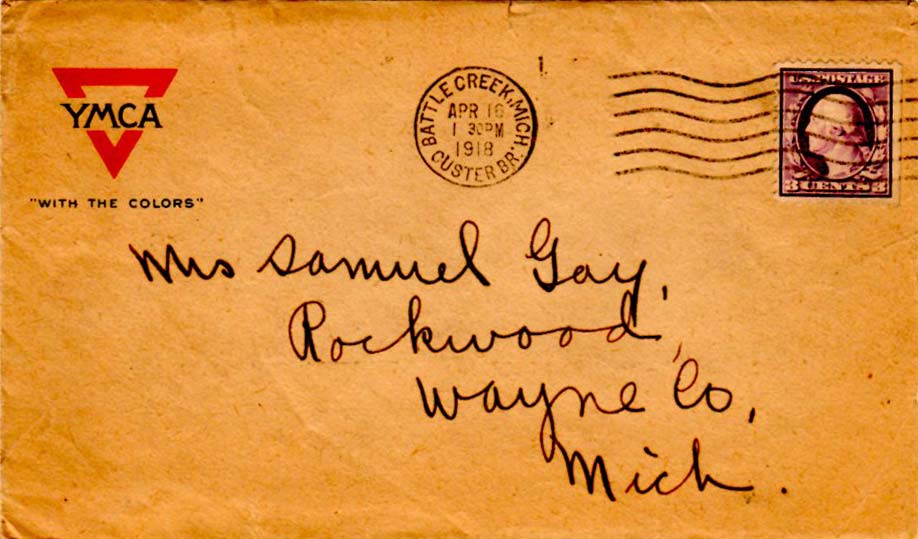 YMCA
"WITH THE COLORS"
BATTLE CREEK, MICH.
APR 16
1 30 PM
1918
CUSTER BR.
U.S. POSTAGE
3 CENTS 3
Mrs Samuel Gay,
Rockwood,
Wayne Co,
Mich.